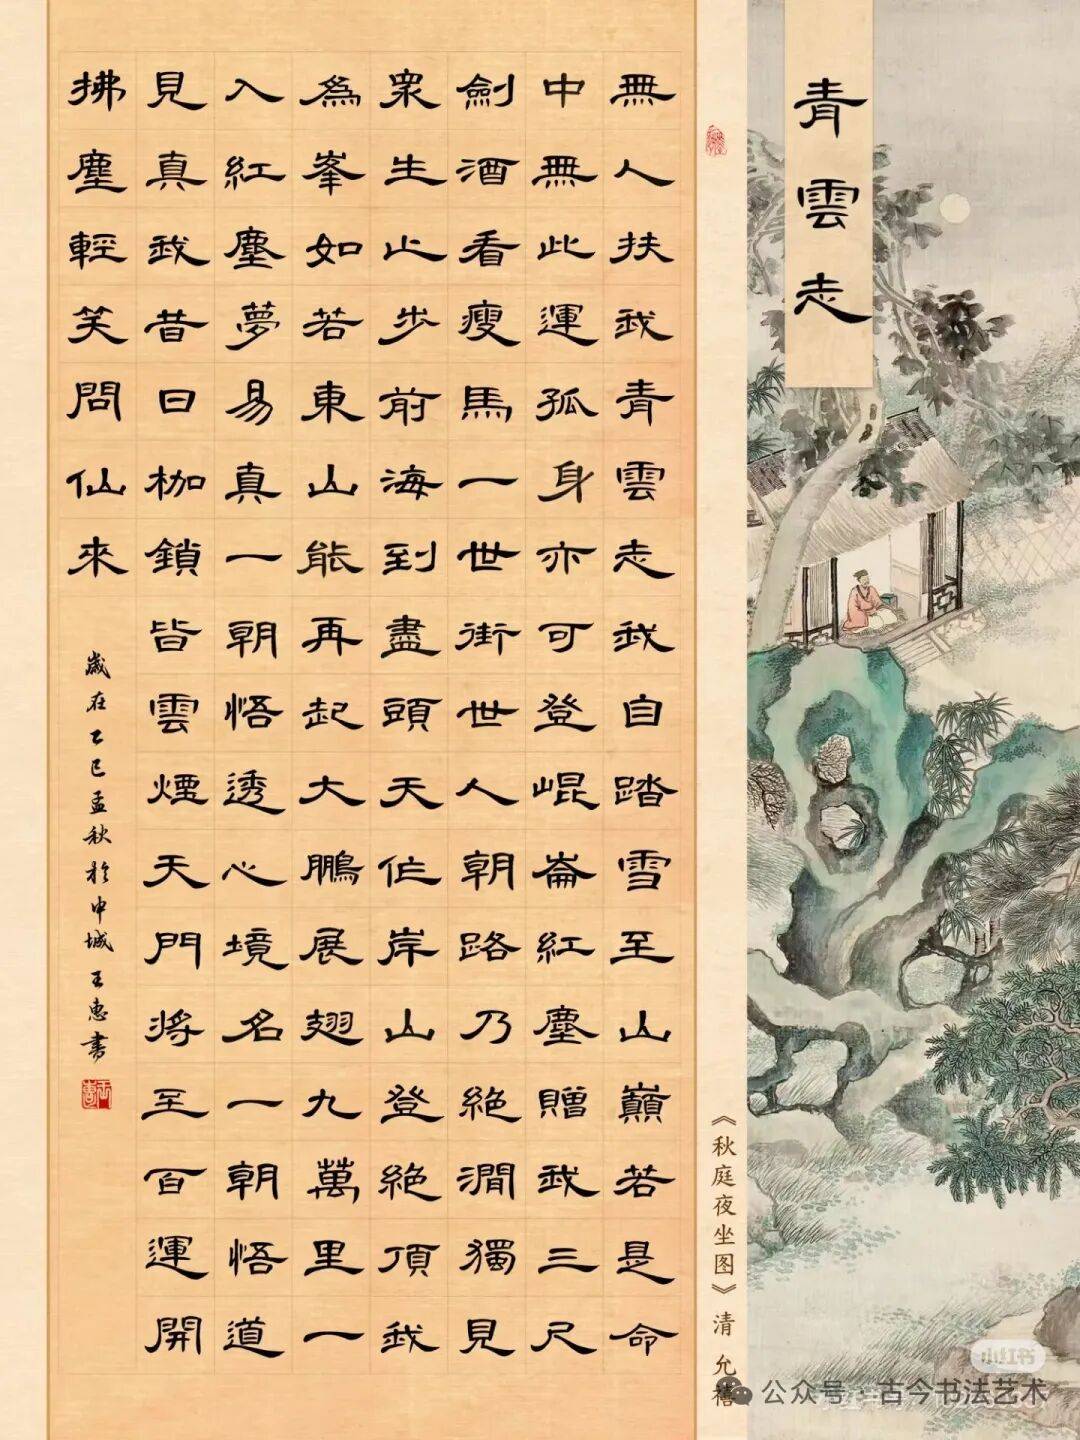 青雲志
無人扶我青雲志我自踏雪至山巔若是命
中無此運孤身亦可登崐崙紅塵贈我三尺
劍酒看瘦馬一世街世人朝路乃絕澗獨見
衆生止步前海到盡頭天作岸山登絕頂我
為峯如若東山能再起大鵬展翅九萬里一
入紅塵夢易真一朝悟透心境名一朝悟道
見真我昔日枷鎖皆雲煙天門將至百運開
拂塵輕笑問仙來
歲在乙巳孟秋於申城王惠書
《秋庭夜坐图》清 允禧
小红书
公众号·古今书法艺术